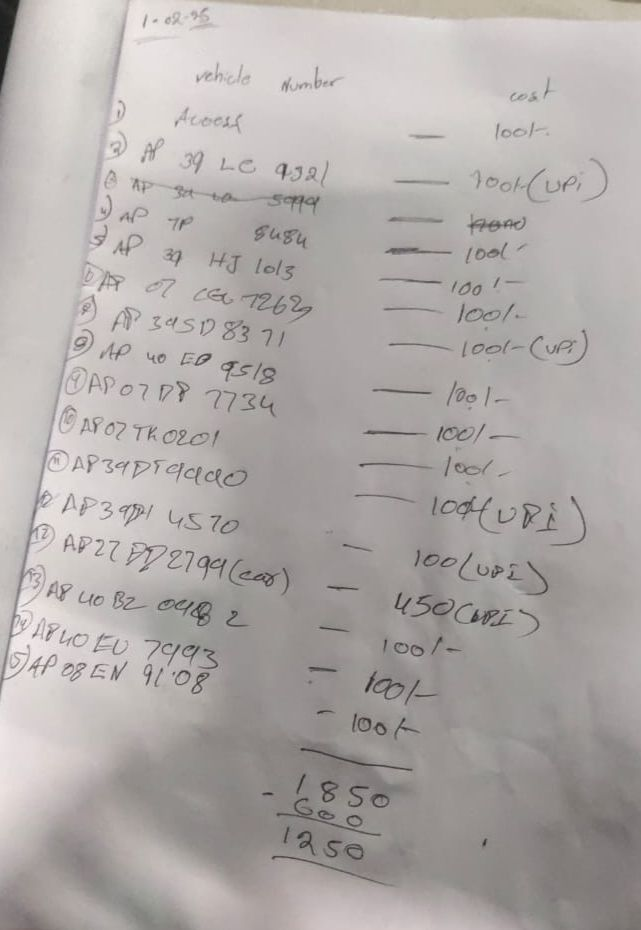 1-02-25
vehicle Number cost
1) Access — 100/-
2) AP 39 LC 9321 — 100/- (UPi)
AP 39 5999 —
4) AP 7P 8484 — 100/-
5) AP 39 HJ 1013 — 100/-
6) AP 07 CEG 7263 — 100/-
AP 39SD 8371 — 100/- (UPi)
8) AP 40 ED 9518 — 100/-
9) AP07 D8 7734 — 100/-
10) AP07 TK0201 — 100/-
11) AP39DT9990 — 100/- (UPI)
12 AP39 4570 — 100 (UPI)
12) AP27 2799 (car) — 450 (UPI)
13) AP 40 BZ 2 — 100/-
14) AP40 EU 7993 — 100/-
15) AP 08 EN 9108 — 100/-
1850
- 600
1250